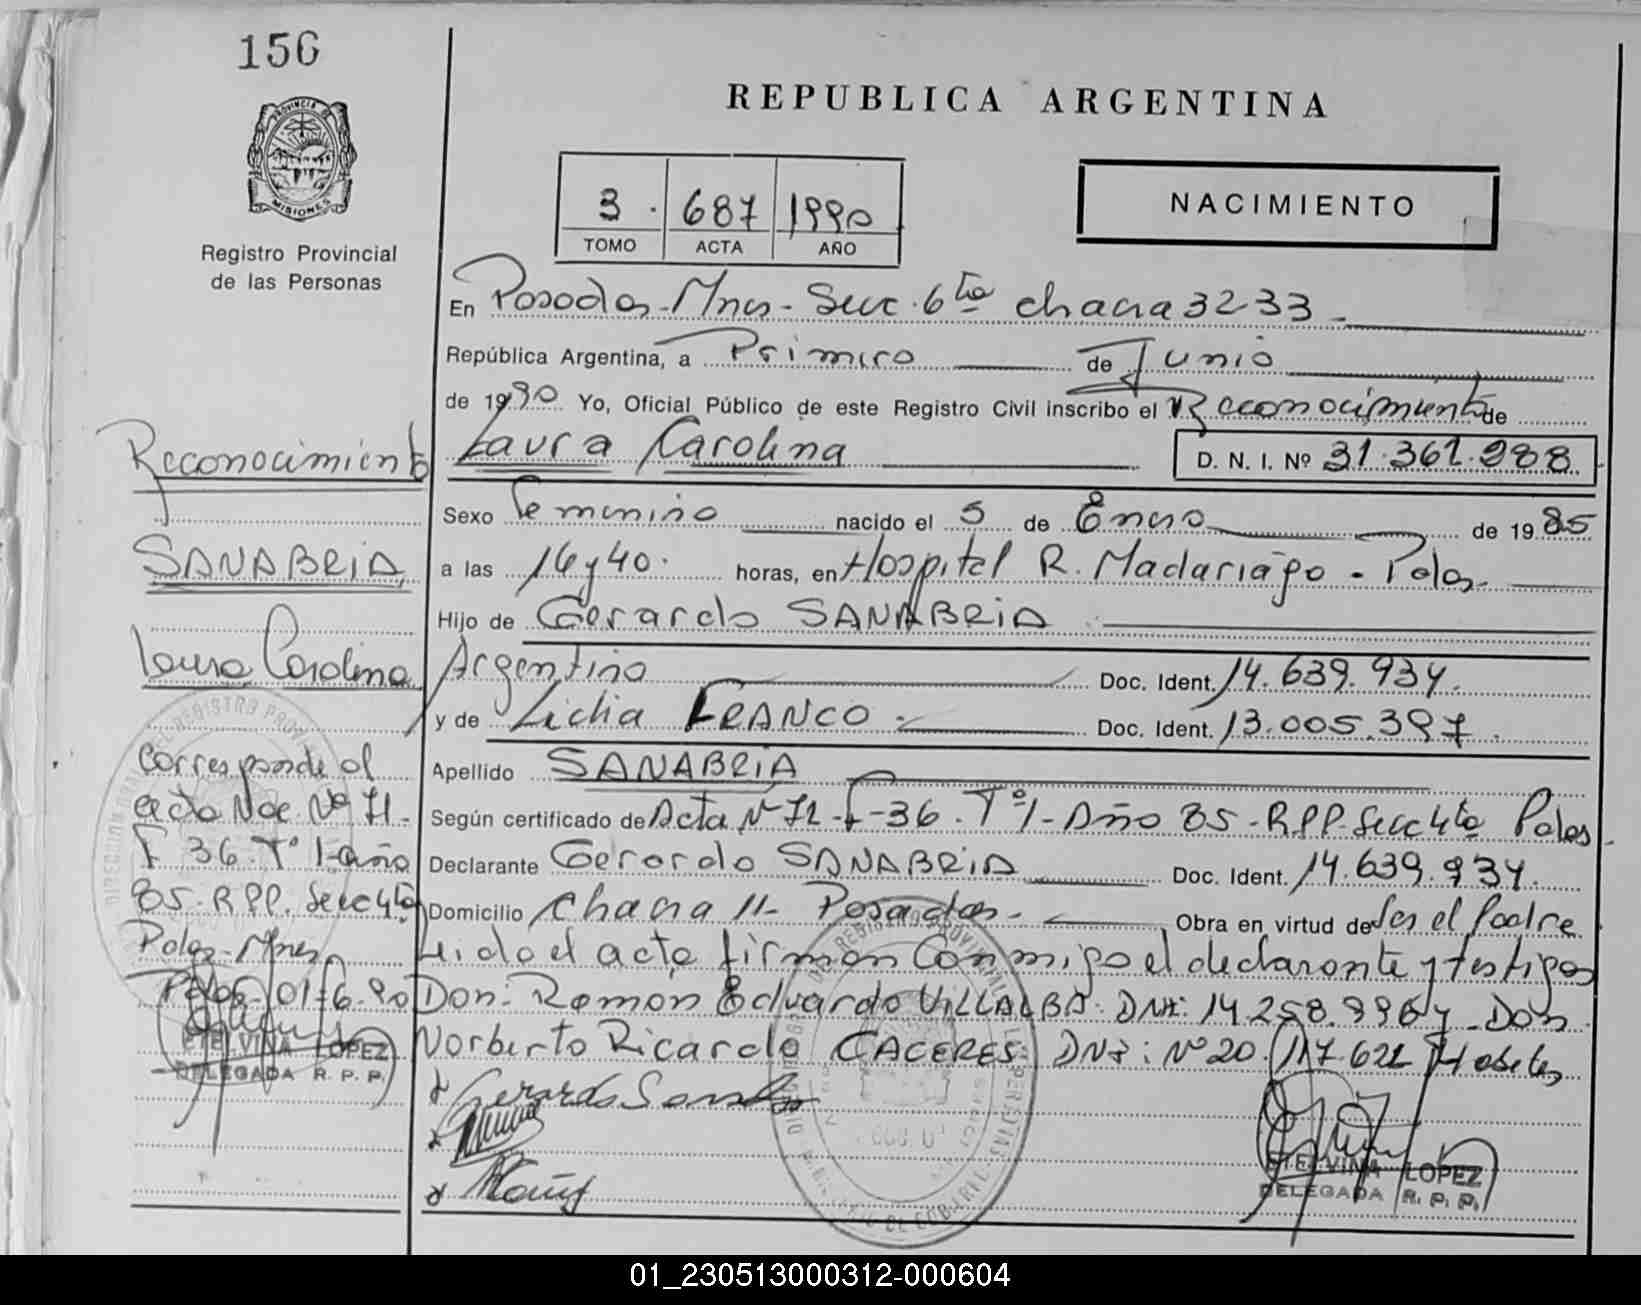 156
REPUBLICA ARGENTINA
PROVINCIA DE MISIONES
Registro Provincial
de las Personas
3 687 1990
TOMO ACTA AÑO
NACIMIENTO
En Posadas-Mnes-Secc. 6ta chacra 32-33
República Argentina, a Primero de Junio
de 1990 Yo, Oficial Público de este Registro Civil inscribo el Reconocimiento de
Laura Carolina D. N. I. Nº 31.361.988
Sexo Femenino nacido el 5 de Enero de 1985
a las 16 y 40 horas, en Hospital R. Madariaga - Pdas.
Hijo de Gerardo SANABRIA
Argentino Doc. Ident. 14.639.934.
y de Lidia FRANCO Doc. Ident. 13.005.397.
Apellido SANABRIA
Según certificado de Acta Nº 72-F-36. Tº 1-Año 85-RPP-Secc 4ta Pdas
Declarante Gerardo SANABRIA Doc. Ident. 14.639.934.
Domicilio Chacra 11- Posadas- Obra en virtud de Ser el Padre
Leido el acta firman Conmigo el declarante y testigos
Don: Ramón Eduardo VILLALBA: DNI: 14.258.996 y Don
Norberto Ricardo CACERES: DNI: Nº 20.117.622 Habiles
Gerardo Sanabria
ETELVINA LOPEZ
DELEGADA R. P. P.
Reconocimiento
SANABRIA,
Laura Carolina
Corresponde al
acta Nac. Nº 71-
F 36. Tº 1-año
85-RPP. Secc 4ta
Pdas-Mnes
Pdas-01-6-90
ETELVINA LOPEZ
DELEGADA R. P. P.
01_230513000312-000604